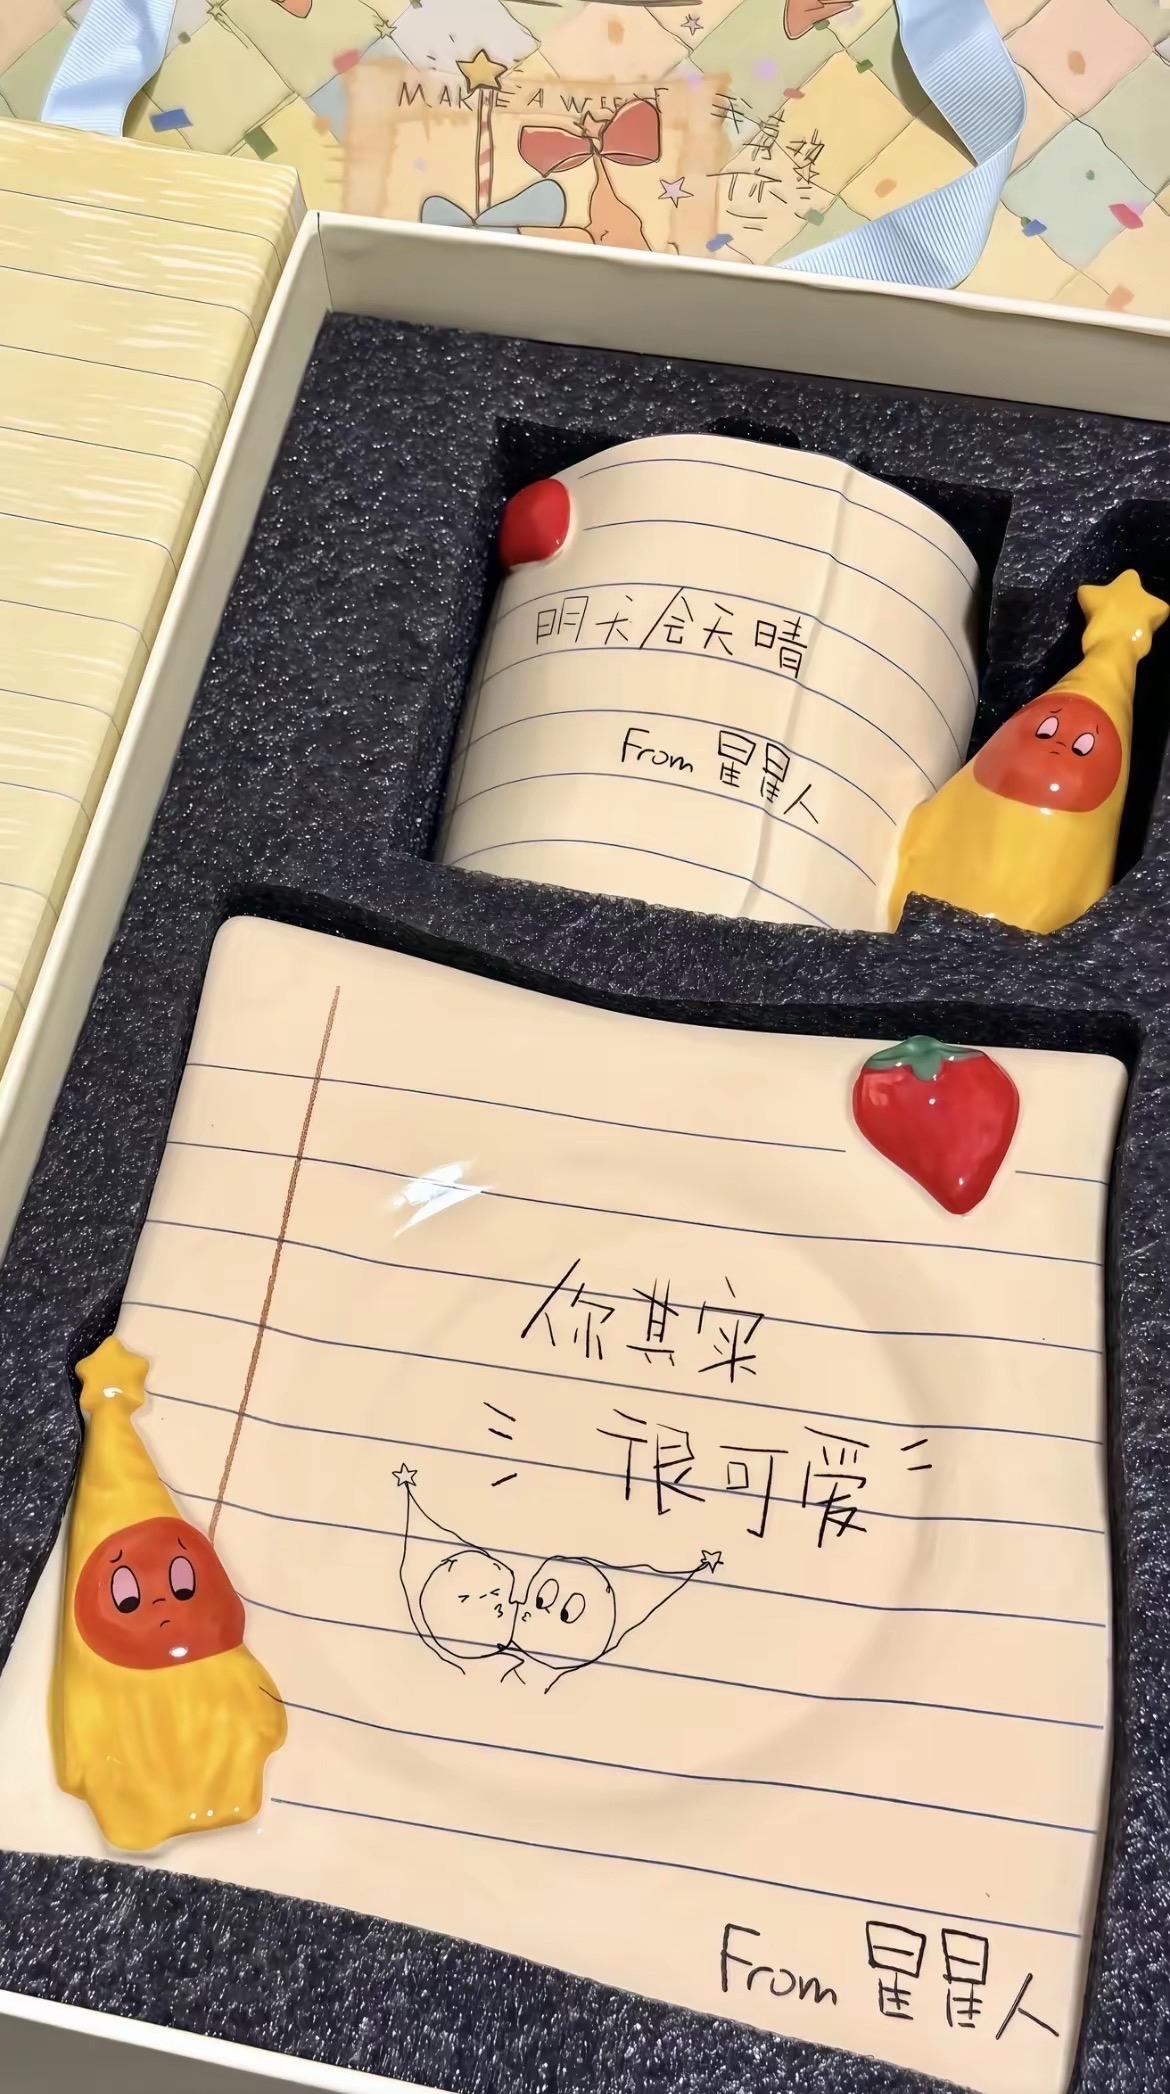 MAKE A WISH
我喜欢
你
明天会天晴
From 星星人
你其实
很可爱
From 星星人